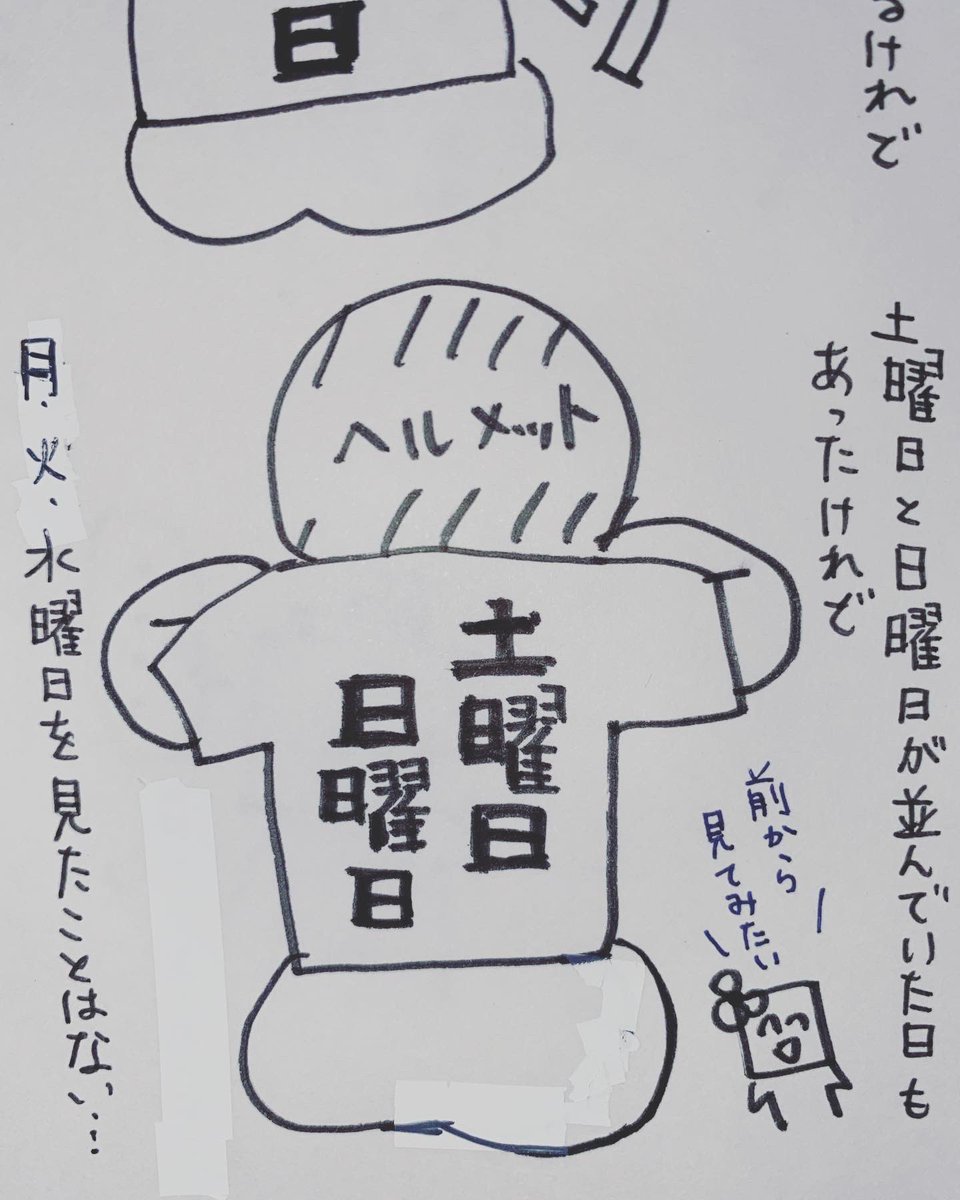 るけれど
日
土曜日と日曜日が並んでいた日も
あったけれど
ヘルメット
土曜日
日曜日
前から
見てみたい
月・火・水曜日を見たことはない…